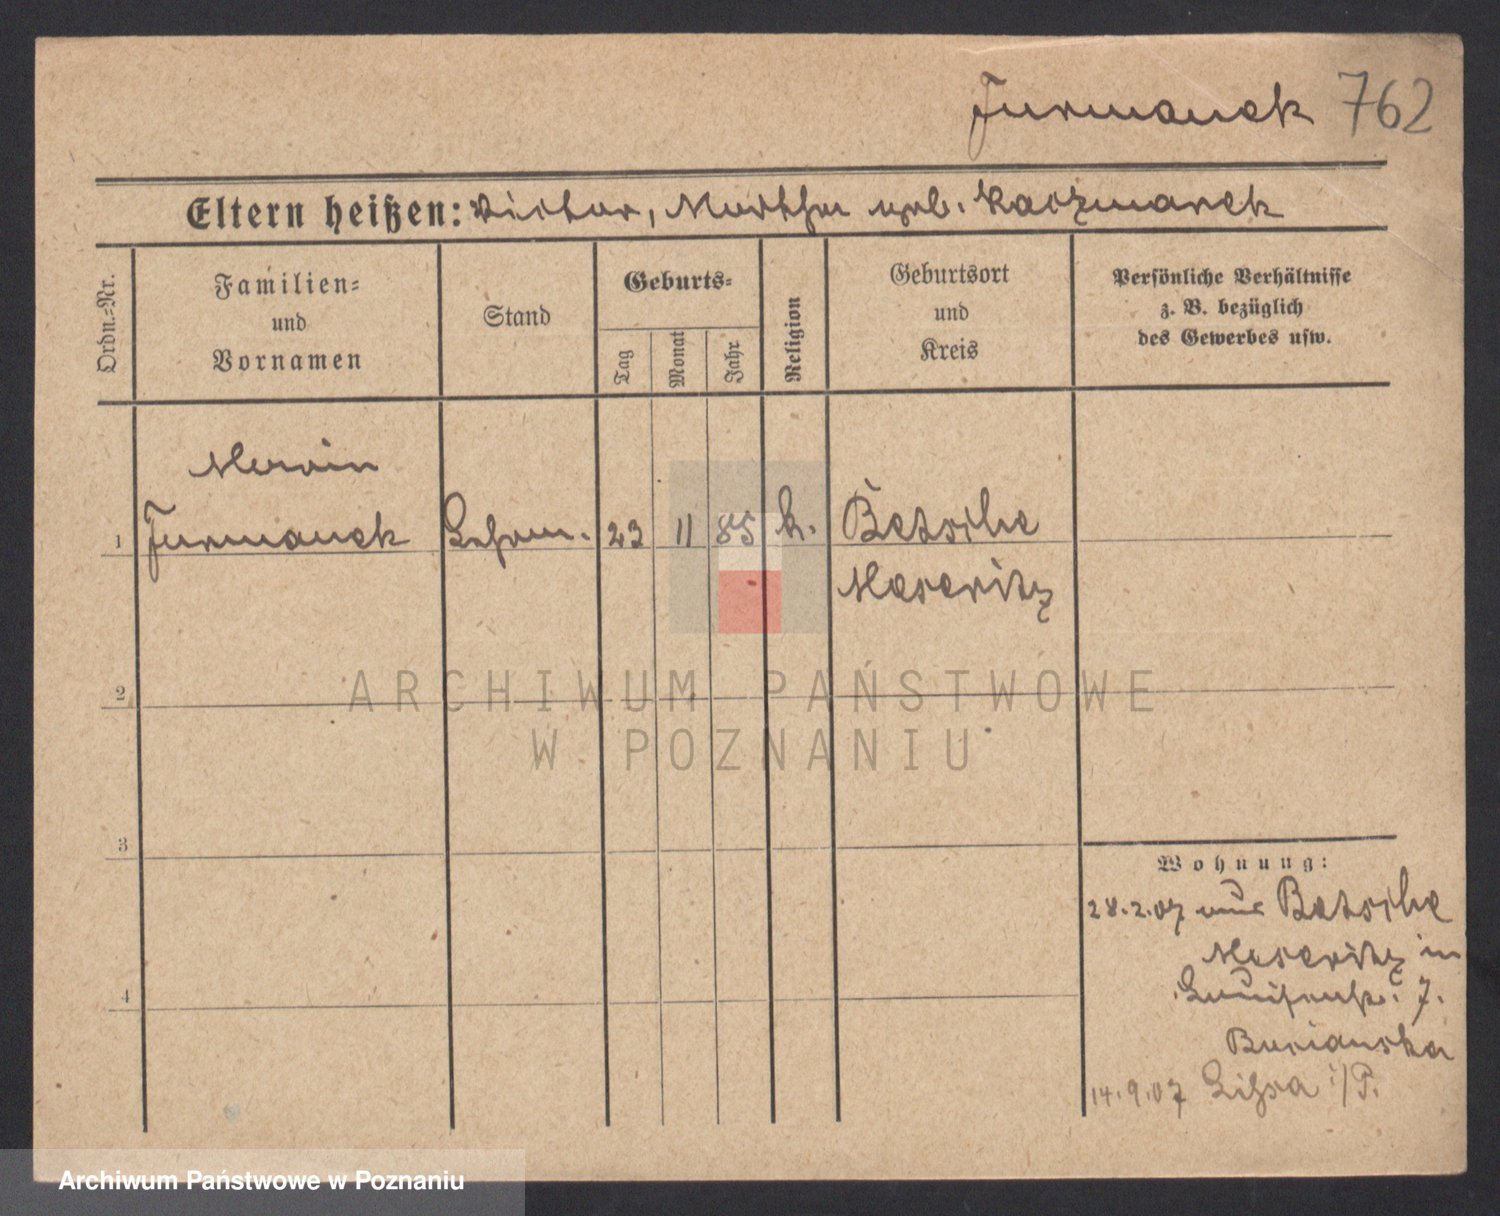 Furmanek 762
Eltern heißen: Victor, Martha geb. Kaczmarek
Ordn.-Nr.
Familien-
und
Vornamen
Stand
Geburts-
Tag
Monat
Jahr
Religion
Geburtsort
und
Kreis
Persönliche Verhältnisse
z. B. bezüglich
des Gewerbes usw.
1
Furmanek
23
11
85
k.
Betsche
Meseritz
2
3
4
Wohnung:
28.2.07 aus Betsche
Meseritz in
Luisenstr. 7.
14.9.07 Lissa i/P.
ARCHIWUM PAŃSTWOWE
W POZNANIU
Archiwum Państwowe w Poznaniu